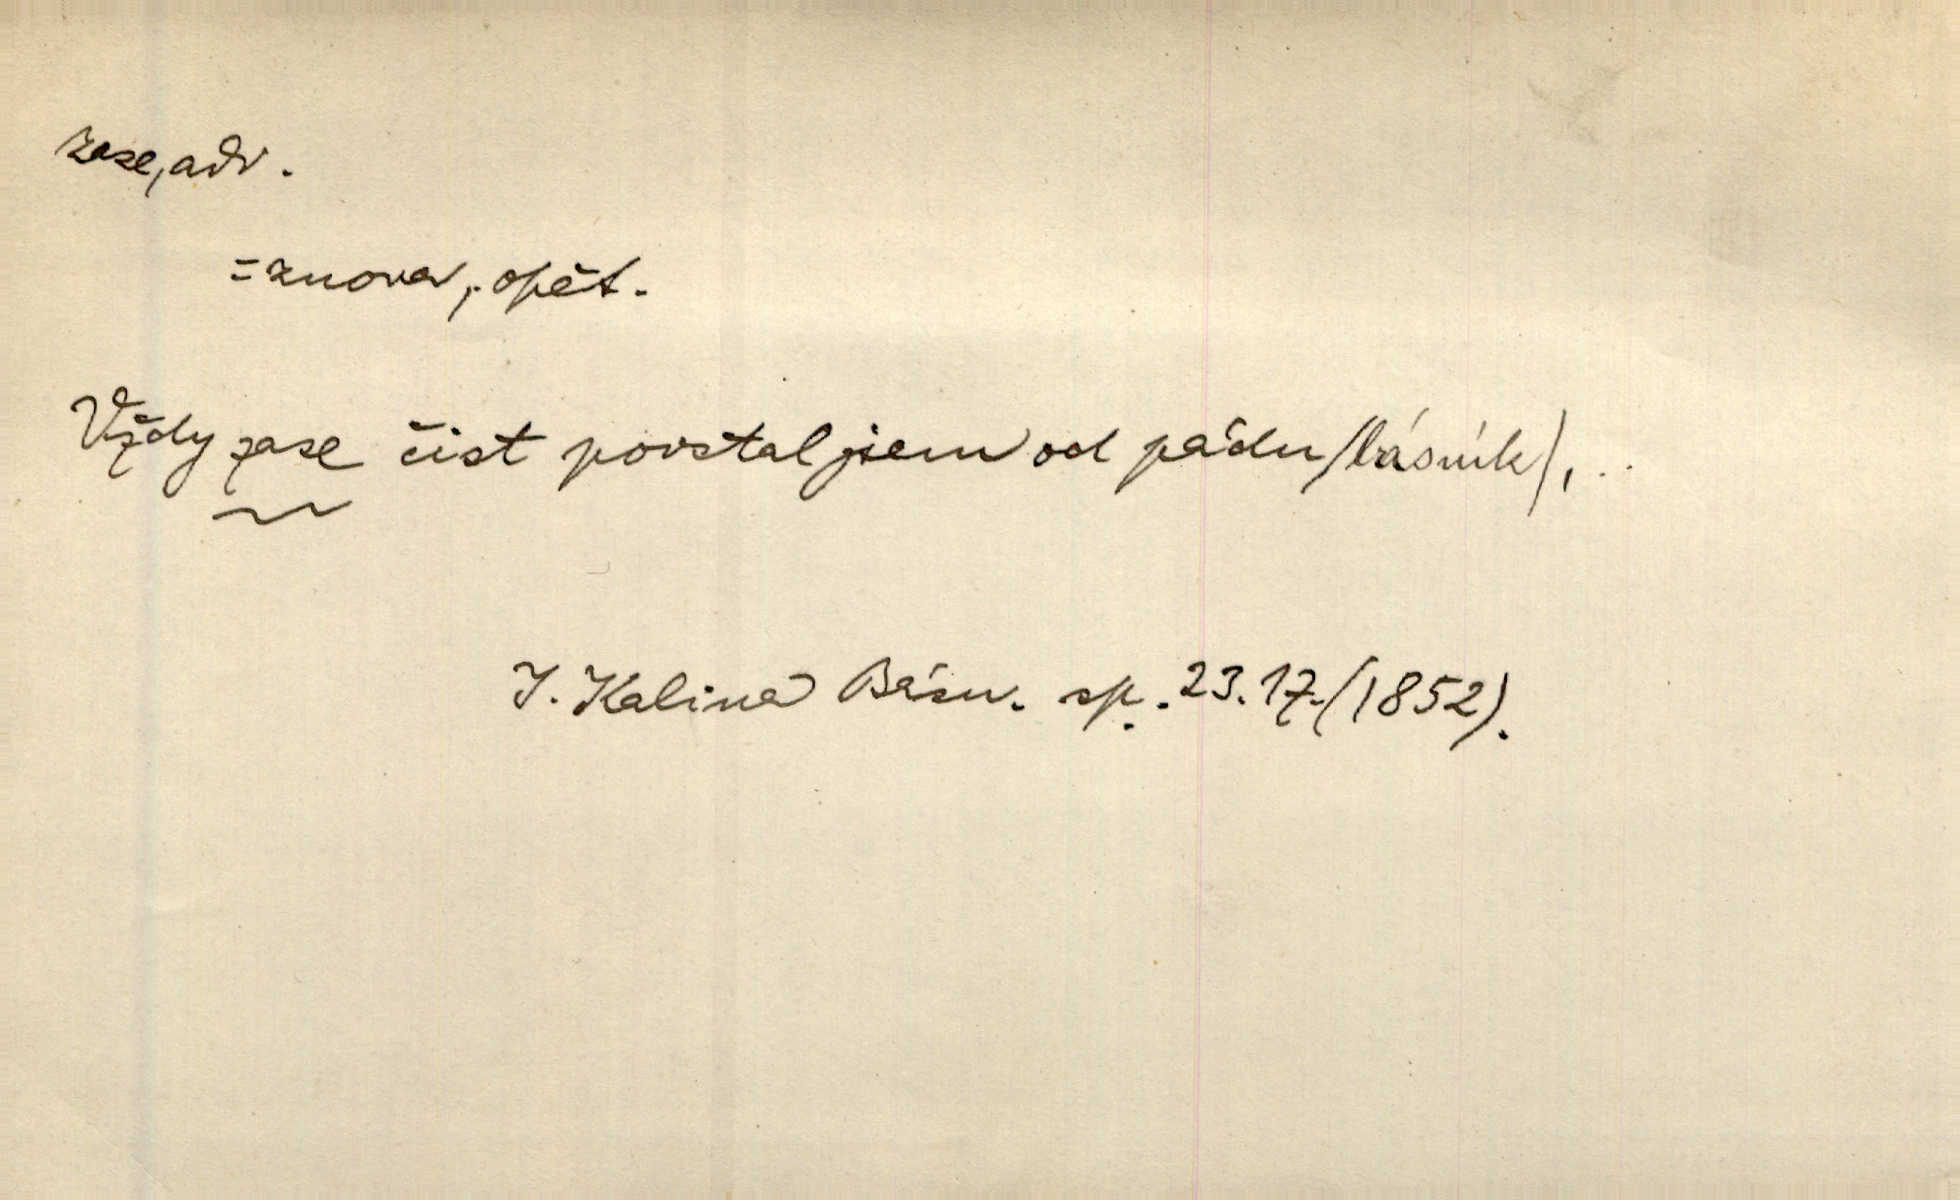 zase, adv.
=znova, opět.
Vždy zase čist povstal jsem od pádu /básník/, ..
J. Kalina Básn. sp. 23.17.(1852).